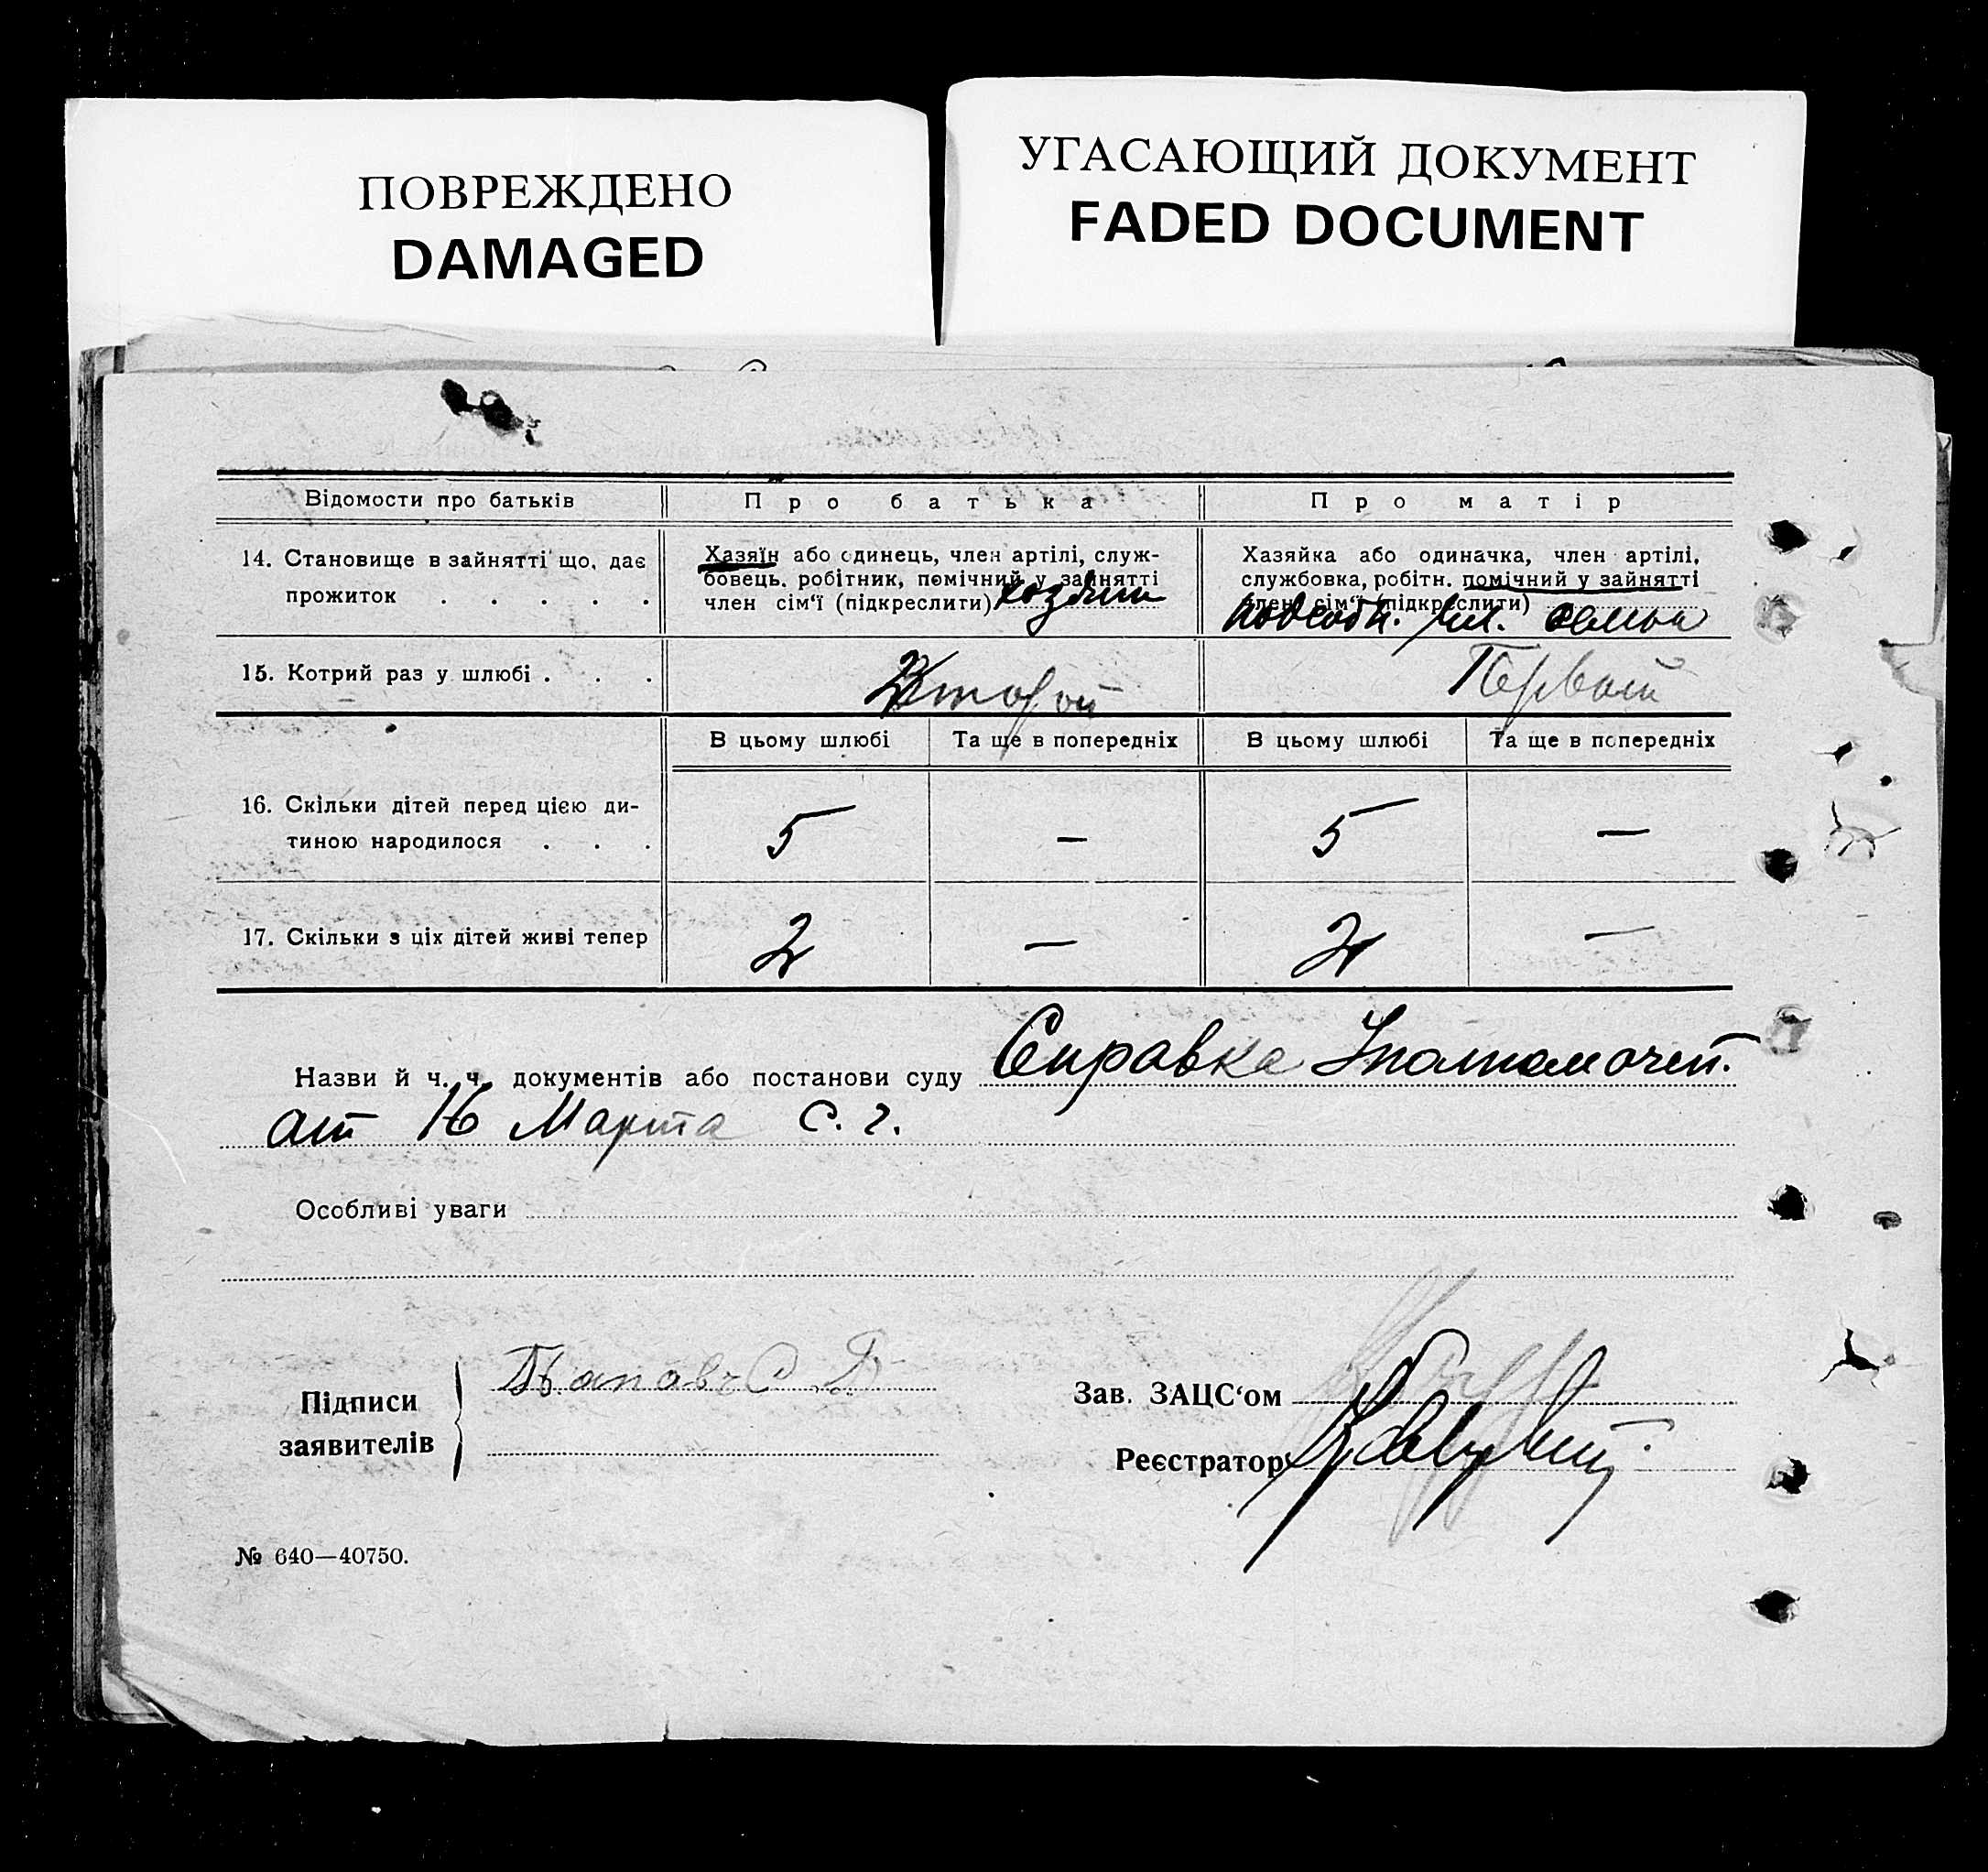 ПОВРЕЖДЕНО
DAMAGED
УГАСАЮЩИЙ ДОКУМЕНТ
FADED DOCUMENT
Відомости про батьків
Про батька
Про матір
14. Становище в зайнятті що, дає
прожиток . . . . .
Хазяїн або одинець, член артілі, служ-
бовець, робітник, помічний у зайнятті
член сім'ї (підкреслити) хозяин
Хазяйка або одиначка, член артілі,
службовка, робітн. помічний у зайнятті
член сім'ї (підкреслити)
чл. семьи
15. Котрий раз у шлюбі . . .
Второй
Первый
В цьому шлюбі
Та ще в попередніх
В цьому шлюбі
Та ще в попередніх
16. Скільки дітей перед цією ди-
тиною народилося . . .
5
—
5
—
17. Скільки з ціх дітей живі тепер
2
—
2
—
Назви й ч. ч. документів або постанови суду Справка Уполномочен.
от 16 Марта с. г.
Особливі уваги
Підписи
заявителів
Зав. ЗАЦС'ом
Реєстратор
№ 640—40750.